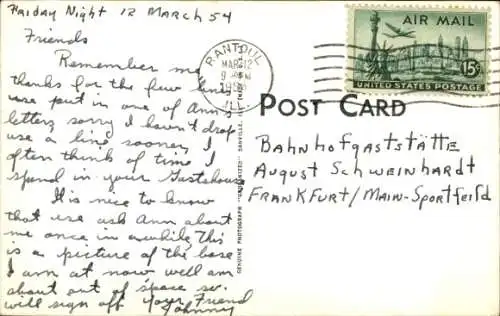 Friday Night 12 March 54
Friends
Remember me
thanks for the few lines
use put in one of Ann's
letters, sorry I haven't drop
use a line sooner, I
often think of time I
spend in your Gasthouse
It is nice to know
that use ask Ann about
me once in awhile, This
is a picture of the base
I am at now well am
about out of space so.
will sign off your Friend
Johnny
RANTOUL
MAR 12
9
ILL.
AIR MAIL
15¢
UNITED STATES POSTAGE
POST CARD
Bahnhofgaststätte
August Schweinhardt
Frankfurt/Main-Sportfeild
GENUINE PHOTOGRAPH
DANVILLE, ILL.